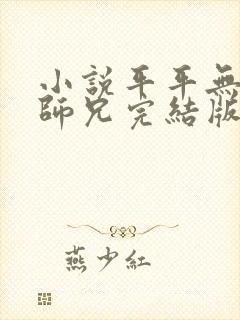 小説平平無
師兄完結版
燕少紅